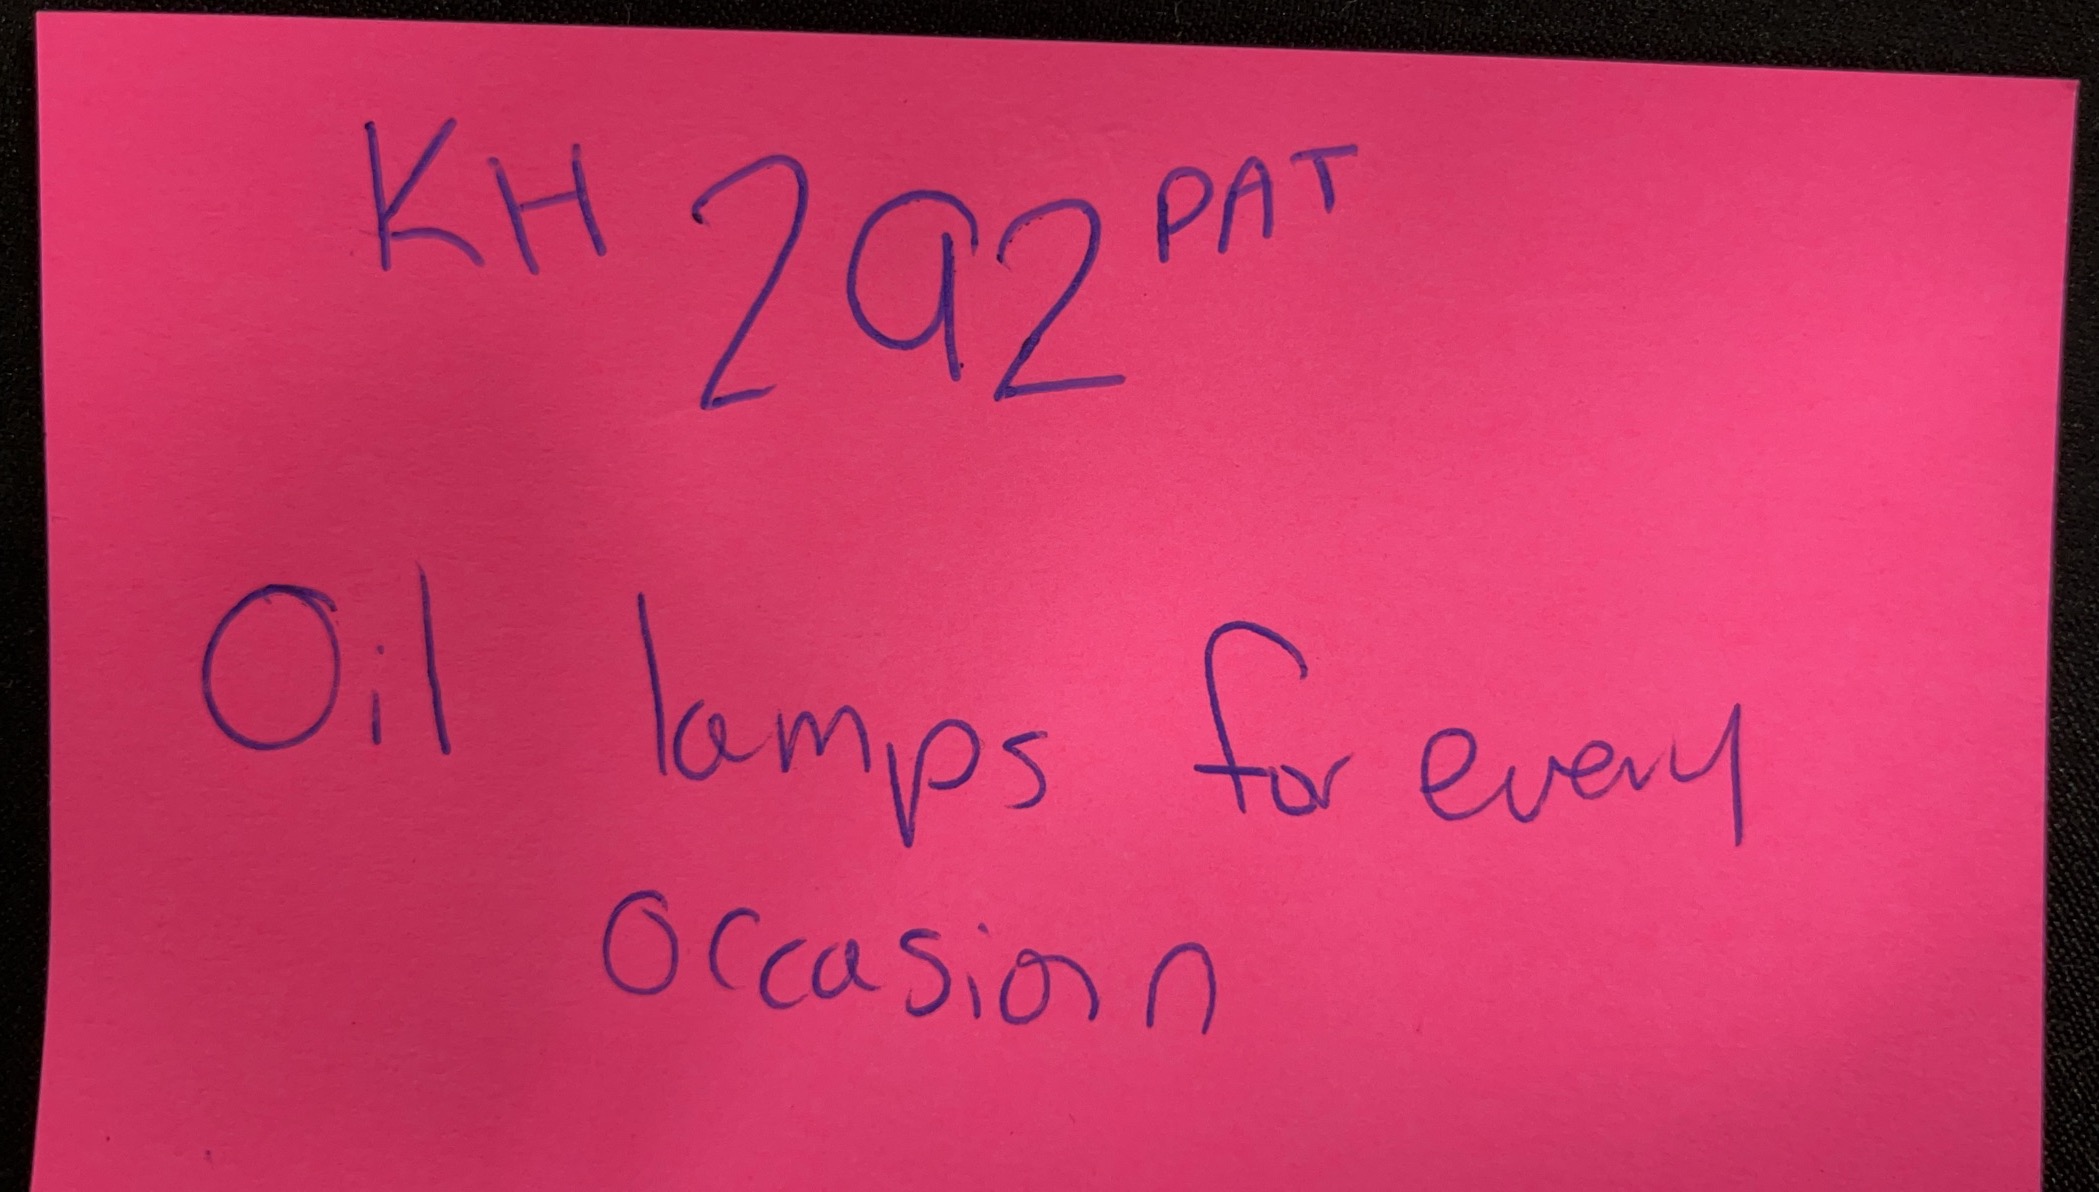 KH 292 PAT
Oil lamps for every
occasion